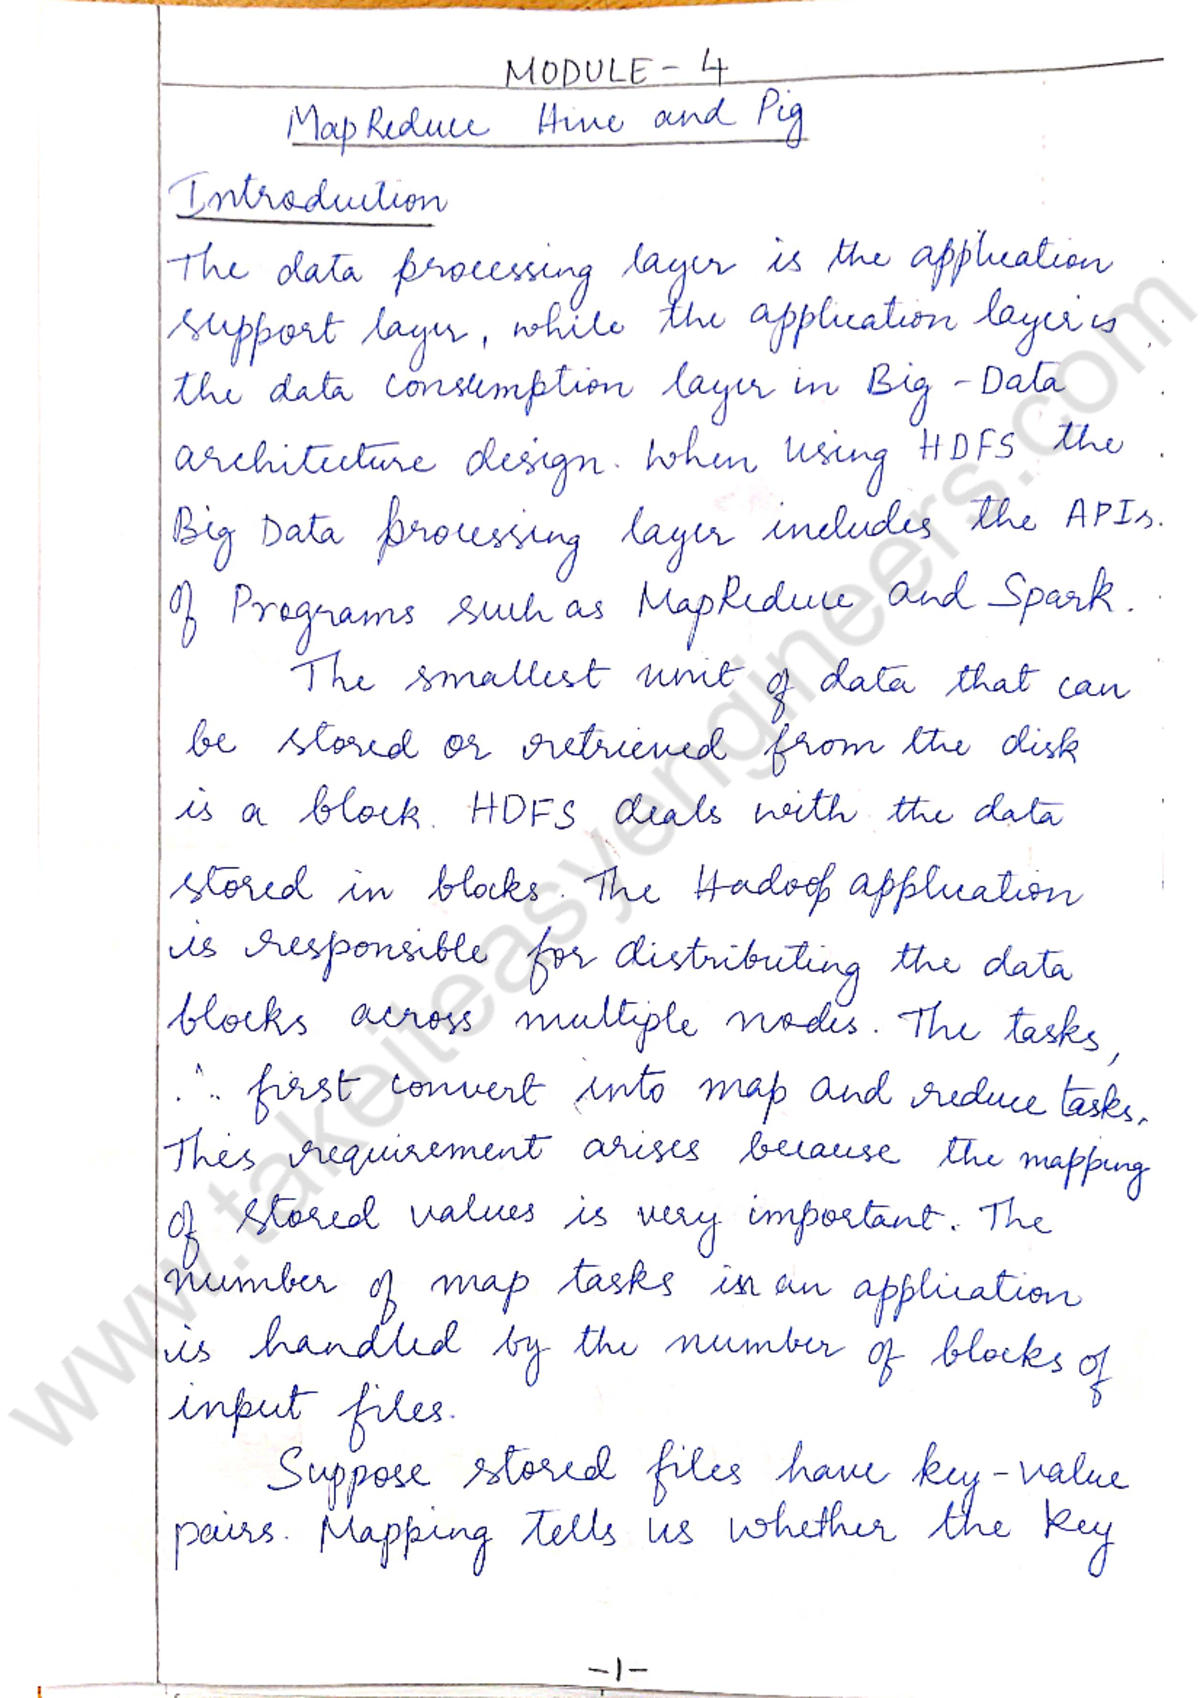 MODULE - 4
MapReduce Hive and Pig
Introduction
The data processing layer is the application
support layer, while the application layer is
the data consumption layer in Big - Data
architecture design. When using HDFS the
Big Data processing layer includes the APIs.
of Programs such as MapReduce and Spark.
The smallest unit of data that can
be stored or retrieved from the disk
is a block. HDFS deals with the data
stored in blocks. The Hadoop application
is responsible for distributing the data
blocks across multiple nodes. The tasks,
∴ first convert into map and reduce tasks.
This requirement arises because the mapping
of stored values is very important. The
number of map tasks in an application
is handled by the number of blocks of
input files.
Suppose stored files have key-value
pairs. Mapping tells us whether the key
-1-
www.takeiteasyengineers.com